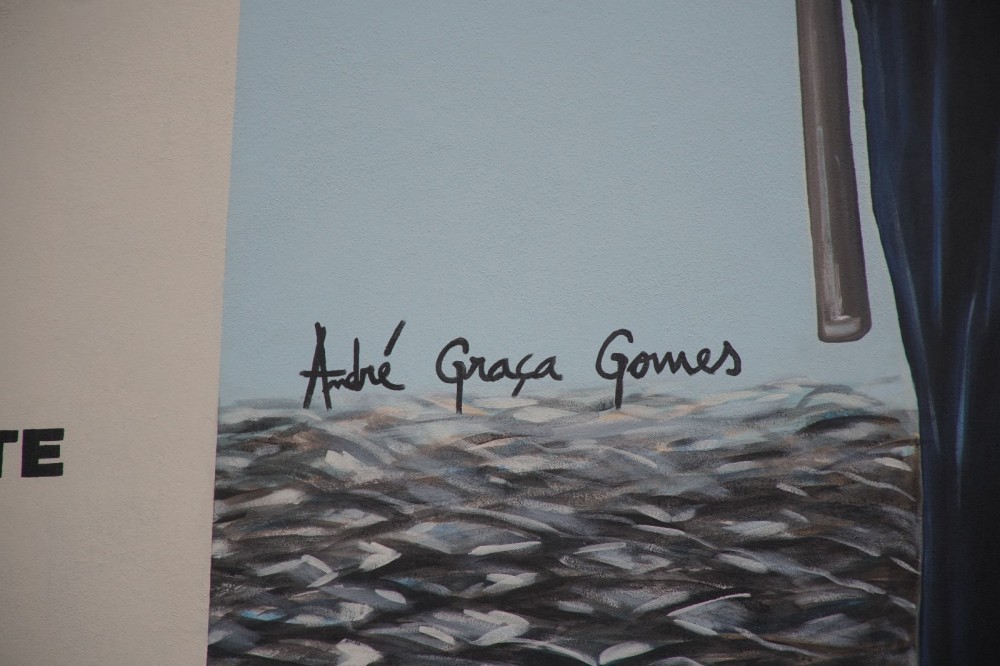 André Graça Gomes
TE